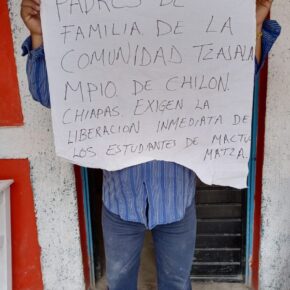 PADRES DE
FAMILIA DE LA
COMUNIDAD TZAJALA
MPIO. DE CHILON.
CHIAPAS. EXIGEN LA
LIBERACION INMEDIATA DE
LOS ESTUDIANTES DE MACTU
MATZA.